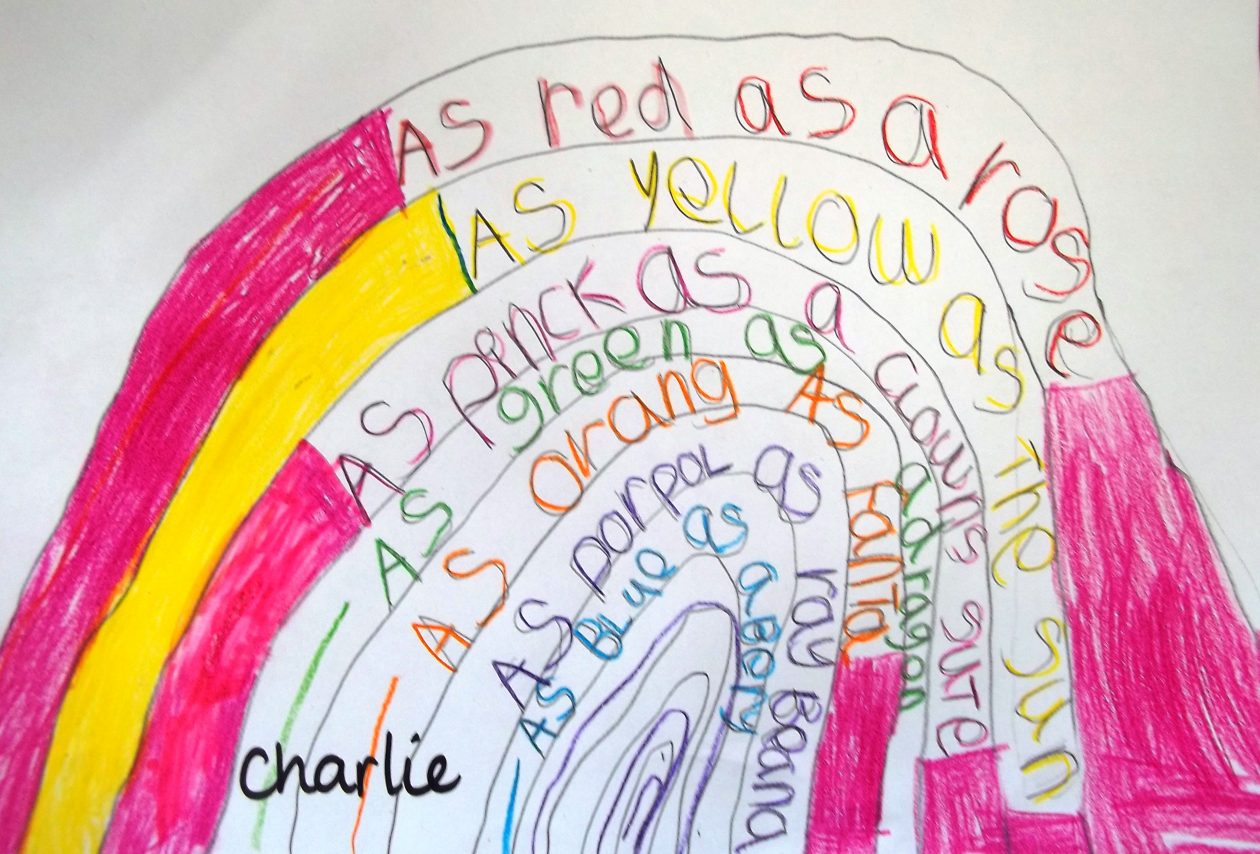 AS red as a rose
AS yellow as The sun
AS penck as a clowns suTe
AS green as a daragon
AS orang AS FanTa
AS porpoL as ray Beana
AS BLue as a Bery
charlie